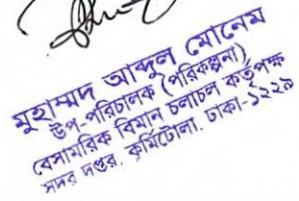 মুহাম্মদ আব্দুল মোনেম
উপ-পরিচালক (পরিকল্পনা)
বেসামরিক বিমান চলাচল কর্তৃপক্ষ
সদর দপ্তর, কুর্মিটোলা, ঢাকা-১২২৯